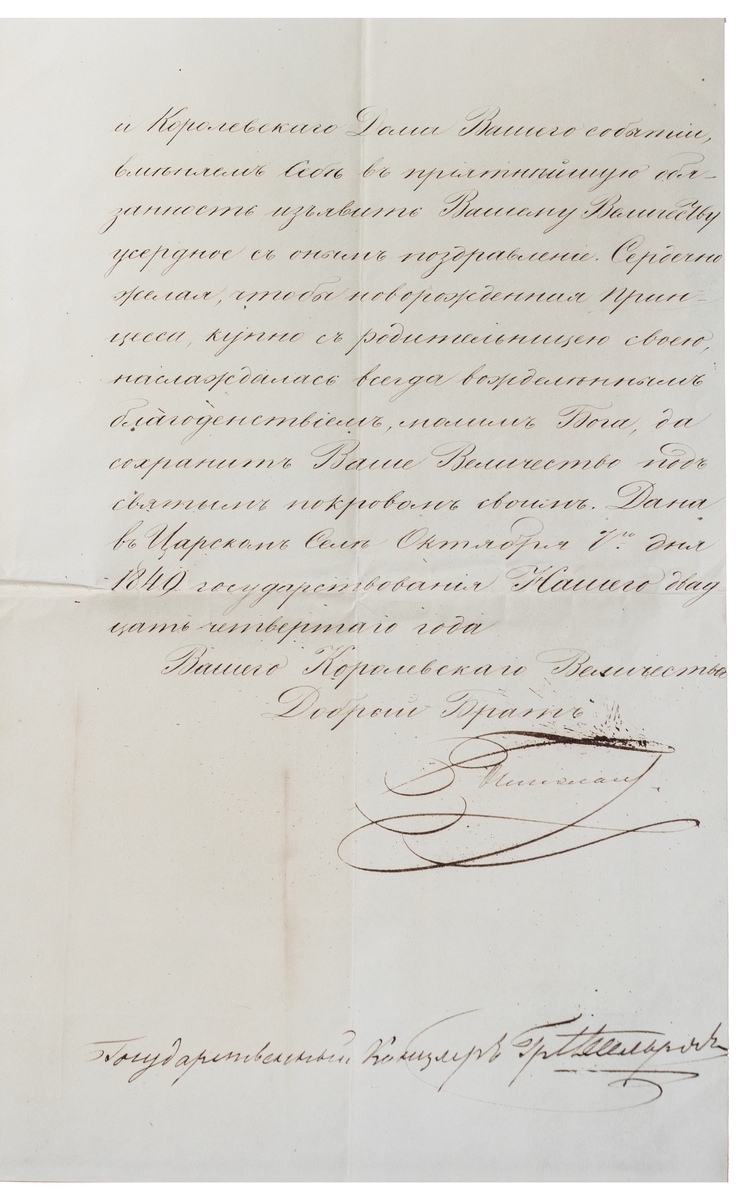 и Королевскаго Дома Вашего событіи,
вмѣняемъ Себѣ въ пріятнѣйшую обя-
занность изъявить Вашему Величеству
усердное съ онымъ поздравленіе. Сердечно
желая, чтобы новорожденная Прин-
цеса, купно съ родительницею своею,
наслаждалась всегда вожделѣннымъ
благоденствіемъ, молимъ Бога, да
сохранитъ Ваше Величество подъ
святымъ покровомъ своимъ. Дана
въ Царскомъ Селѣ Октября дня
1849 государствованія Нашего двад
цать четвертаго года
Вашего Королевскаго Величества
Добрый Братъ
Николай
Государственный Канцлеръ Гр. Нессельроде